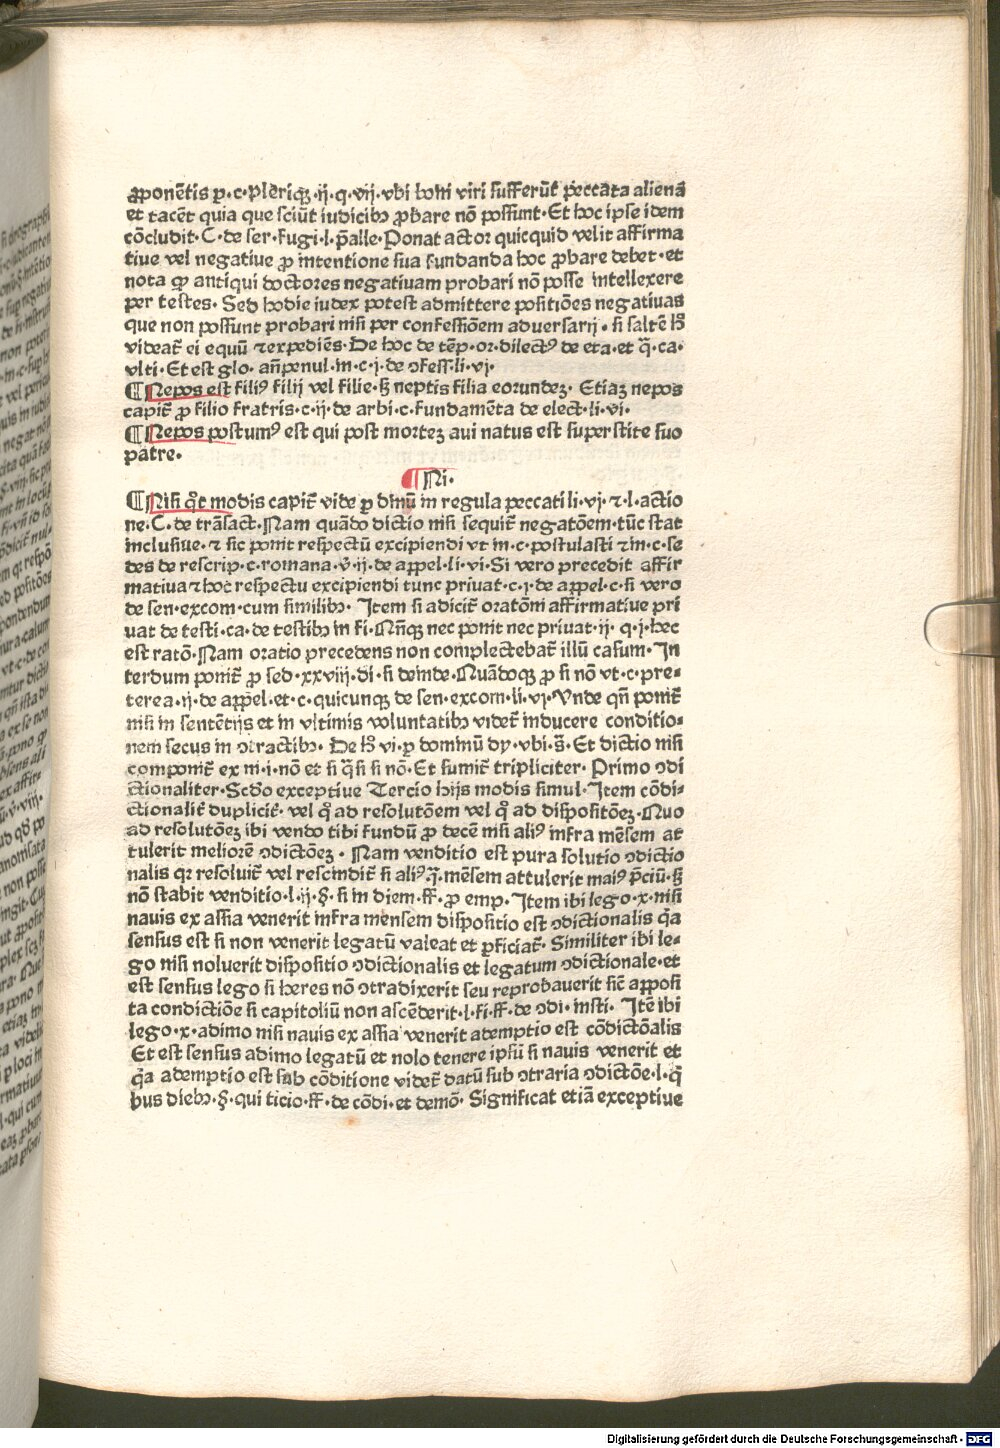 ꝓponētis ꝑ·c·pleriqꝫ·ij·q·vij·vbi boni viri sufferūt peccata alienā
et tacēt quia que sciūt iudicibꝫ ꝓbare nō possunt·Et hoc ipse idem
cōcludit·C·de ser·fugi·l·p̄alle·Ponat actor quicquid velit affirma
tiue vel negatiue ꝓ intentione sua fundanda hoc ꝓbare debet·et
nota ꝙ antiqui doctores negatiuam probari nō posse intellexere
per testes· Sed hodie iudex potest admittere positiōes negatiuas
que non possunt probari nisi per confessiōem aduersarij·si saltē hꝰ
videat̄ ei equū ⁊expediēs·De hoc de tēp·or·dilectꝰ de eta·et q̄·ca·
vlti·Et est glo·an̄penul·in·c·j·de ↄfess·li·vj·
¶Nepos est filiꝰ filij vel filie·sꝫ neptis filia eorundeꝫ· Etiaꝫ nepos
capit̄ ꝓ filio fratris·c·ij·de arbi·c·fundamēta de elect·li·vi·
¶Nepos postumꝰ est qui post morteꝫ aui natus est superstite suo
patre·
¶Ni·
¶Nisi qͦt modis capit̄ vide ꝑ dn̄m̄ in regula peccati li·vj·⁊·l·actio
ne·C·de trāsact·Nam quādo dictio nisi sequit̄ negatōem·tūc stat
inclusiue·⁊ sic ponit respectū excipiendi vt in·c·postulasti ⁊in·c·se
des de rescrip·c·romana·ꝟ·ij·de appel·li·vi·Si vero precedit affir
matiua⁊hoc respectu excipiendi tunc priuat·c·j·de appel·c·si vero
de sen·excom·cum similibꝫ· Item si adicit̄ oratōni affirmatiue pri
uat de testi·ca·de testibꝫ in fi·Nn̄qꝫ nec ponit nec priuat·ij·q·j·hec
est ratō·Nam oratio precedens non complectebat̄ illū casum·In
terdum ponit̄ ꝓ sed·xxviij·di·si deinde·Nuādoqꝫ ꝓ si nō vt·c·pre⸗
terea·ij·de appel·et·c·quicunqꝫ de sen·excom·li·vj·Vnde qn̄ ponit̄
nisi in sentētijs et in vltimis voluntatibꝫ videt̄ inducere conditio⸗
nem secus in ↄtractibꝫ· De hꝰ vi·ꝑ dominū dy·vbi·s̄·Et dictio nisi
componit̄ ex in·i·nō et si q̄si si nō·Et sumit̄ tripliciter· Primo ↄdi
ctionaliter·Scdo exceptiue Tercio hijs modis simul·Item cōdi⸗
ctionalit̄ duplicit̄· vel qͦ ad resolutōem vel qͦ ad dispositōeꝫ·Nuo
ad resolutōeꝫ ibi vendo tibi fundū ꝓ decē nisi aliꝰ infra mēsem at
tulerit meliorē ↄdictōeꝫ · Nam venditio est pura solutio ↄdictio
nalis qꝛ resoluit̄ vel rescindit̄ si aliꝰ·j̄·mēsem attulerit maiꝰ p̄ciū·sꝫ
nō stabit venditio·l·ij·§·si in diem·ff·ꝓ emp·Item ibi lego·x·nisi
nauis ex assia venerit infra mensem dispositio est ↄdictionalis q̄a
sensus est si non venerit legatū valeat et ꝑficiat̄· Similiter ibi le⸗
go nisi noluerit dispositio ↄdictionalis et legatum ↄdictionale·et
est sensus lego si heres nō ↄtradixerit seu reprobauerit sic̄ apposi
ta condictiōe si capitoliū non ascēderit·l·fi·ff·de ↄdi·insti· Itē ibi
lego·x·adimo nisi nauis ex assia venerit ademptio est cōdictōalis
Et est sensus adimo legatū et nolo tenere ipsū si nauis venerit et
q̄a ademptio est sub cōditione videt̄ datū sub ↄtraria ↄdictōe·l·q̄
bus diebꝫ·§·qui ticio·ff·de cōdi·et demō· Significat etiā exceptiue
Digitalisierung gefördert durch die Deutsche Forschungsgemeinschaft - DFG